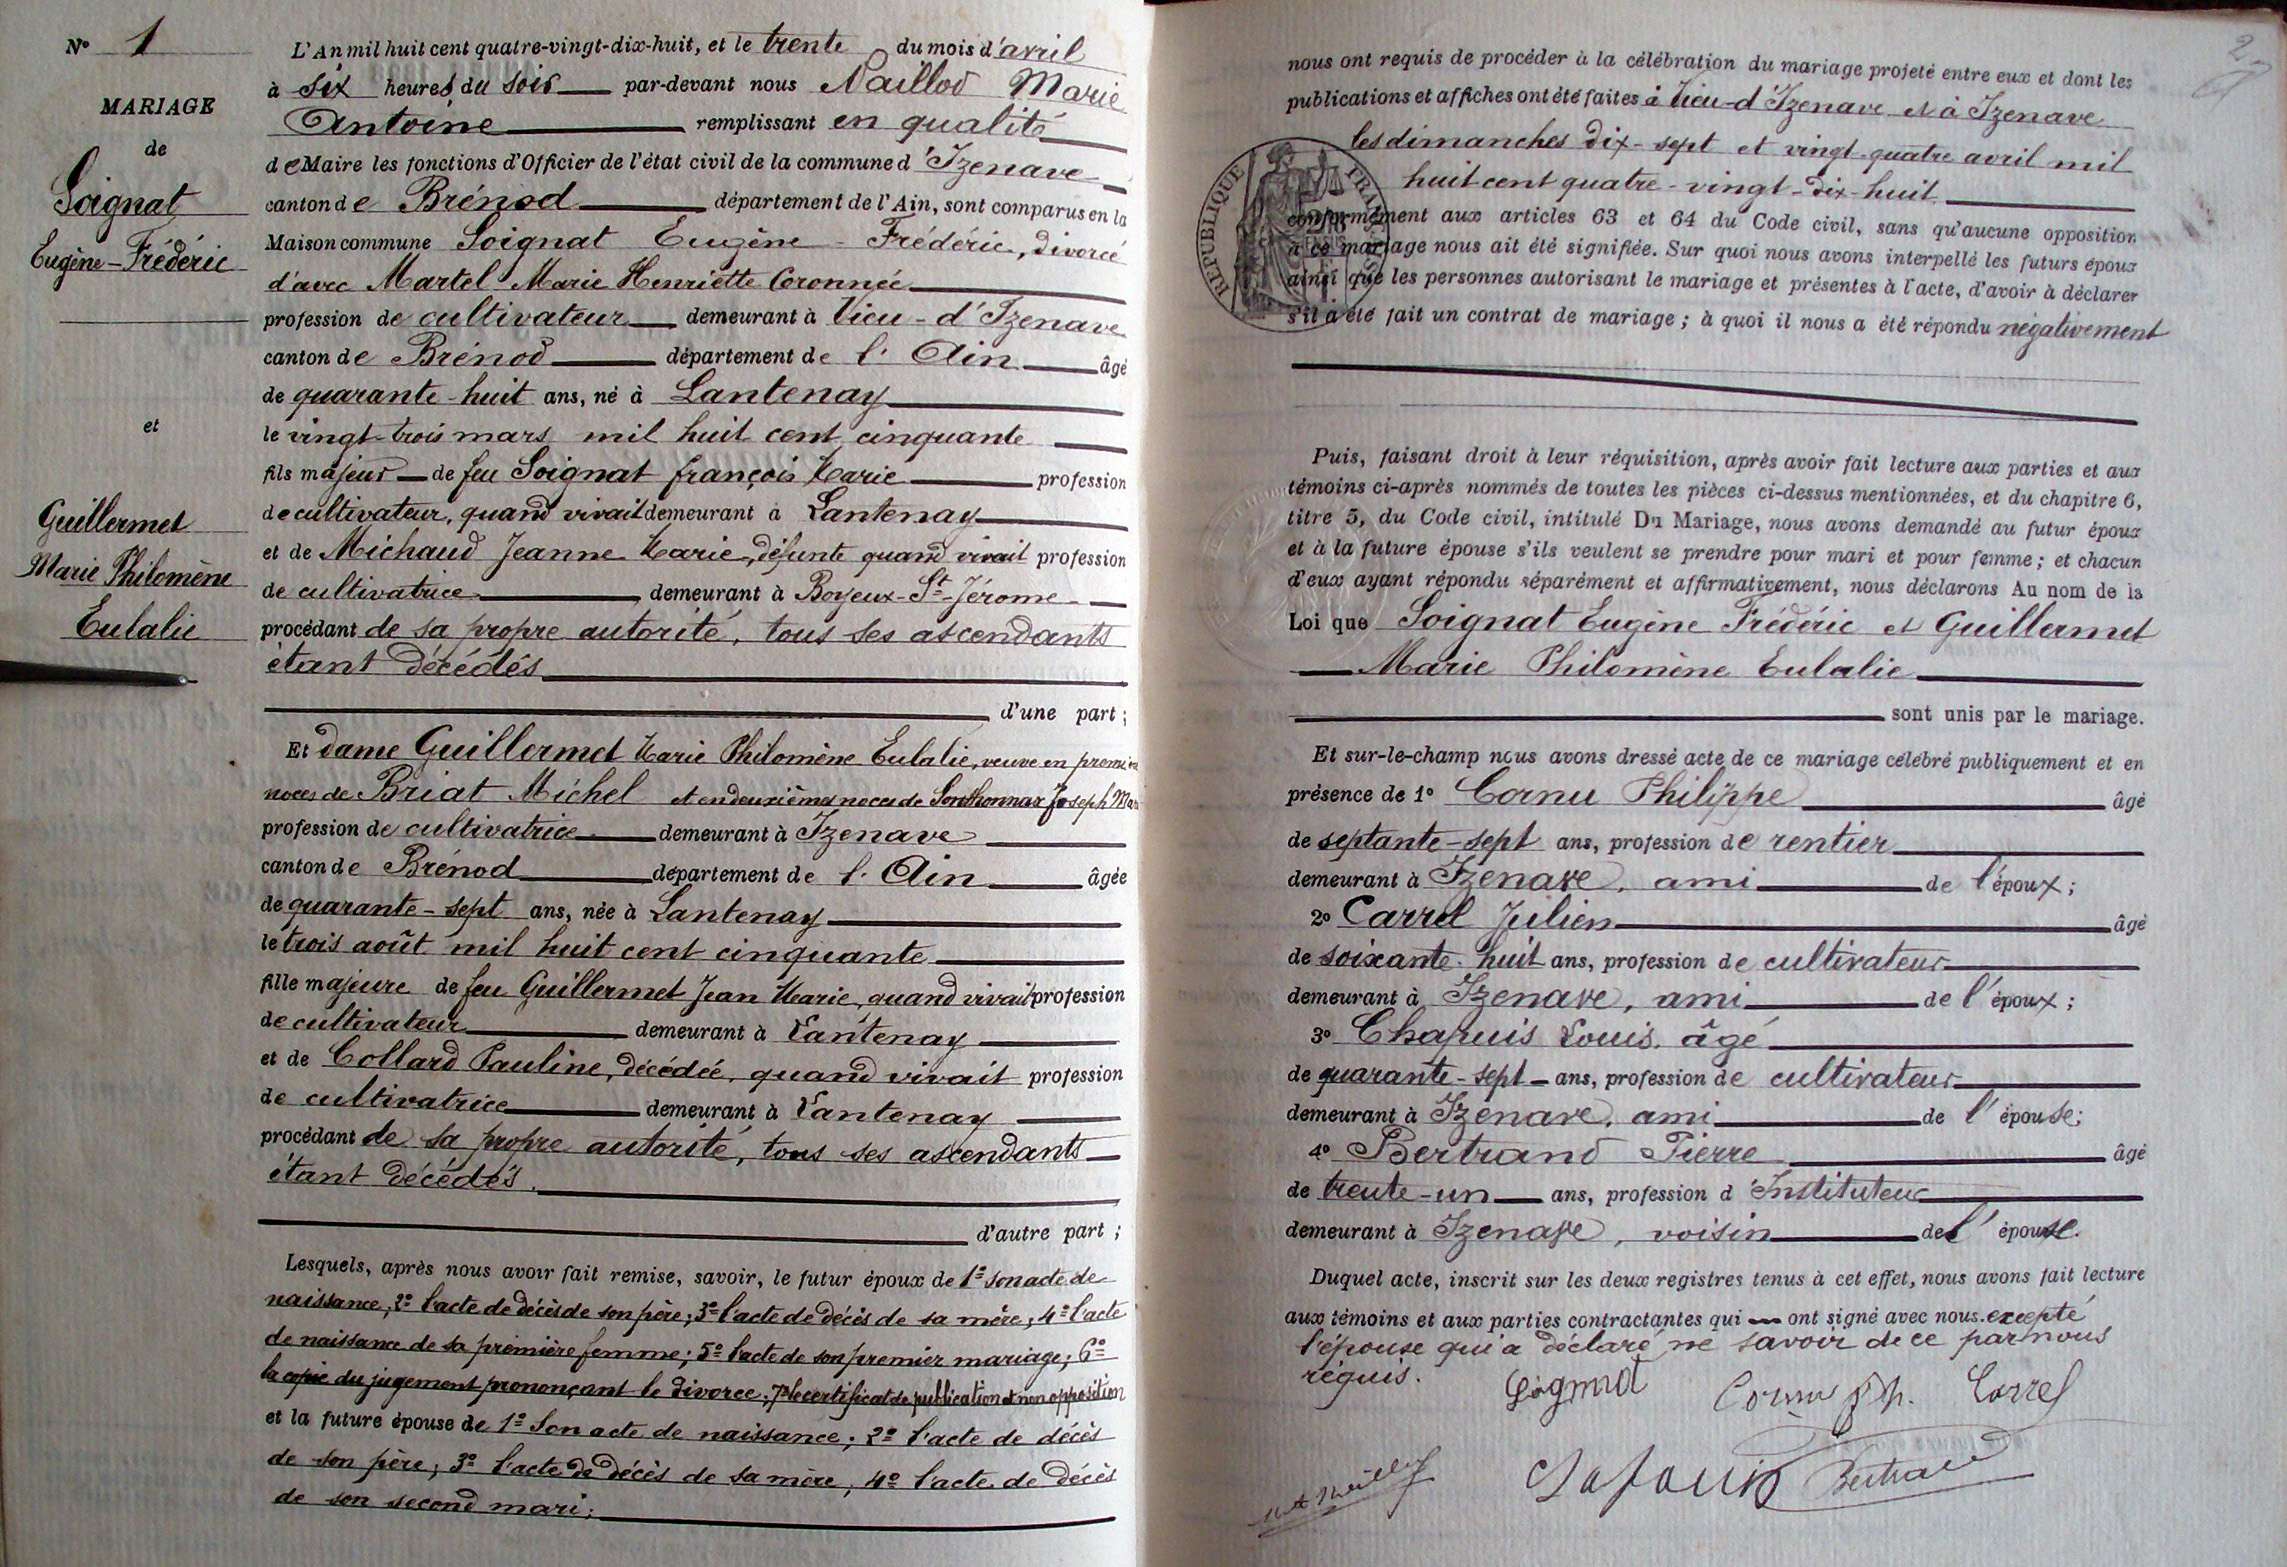 N° 1
MARIAGE
de
Soignat
Eugène-Frédéric
et
Guillermet
Marie Philomène
Eulalie
L'An mil huit cent quatre-vingt-dix-huit, et le trente du mois d'avril
à six heures du soir par-devant nous Naillod Marie
Antoine remplissant en qualité
de Maire les fonctions d'Officier de l'état civil de la commune d'Izenave
canton de Brénod département de l'Ain, sont comparus en la
Maison commune Soignat Eugène-Frédéric, divorcé
d'avec Martel Marie Henriette Coronnée
profession de cultivateur demeurant à Vieu-d'Izenave
canton de Brénod département de l'Ain âgé
de quarante-huit ans, né à Lantenay
le vingt-trois mars mil huit cent cinquante
fils majeur de feu Soignat françois Marie profession
de cultivateur, quand vivait demeurant à Lantenay
et de Michaud Jeanne Marie, défunte quand vivait profession
de cultivatrice demeurant à Boyeux-St-Jérome
procédant de sa propre autorité, tous ses ascendants
étant décédés
d'une part;
Et dame Guillermet Marie Philomène Eulalie, veuve en premières
noces de Briat Michel et en deuxièmes noces de Sonthonnax Joseph Marie
profession de cultivatrice demeurant à Izenave
canton de Brénod département de l'Ain âgée
de quarante-sept ans, née à Lantenay
le trois août mil huit cent cinquante
fille majeure de feu Guillermet Jean Marie, quand vivait profession
de cultivateur demeurant à Lantenay
et de Collard Pauline, décédée, quand vivait profession
de cultivatrice demeurant à Lantenay
procédant de sa propre autorité, tous ses ascendants
étant décédés.
d'autre part;
Lesquels, après nous avoir fait remise, savoir, le futur époux de 1° son acte de
naissance, 2° l'acte de décès de son père; 3° l'acte de décès de sa mère; 4° l'acte
de naissance de sa première femme; 5° l'acte de son premier mariage; 6°
la copie du jugement prononçant le divorce; 7° le certificat de publication et non opposition
et la future épouse de 1° Son acte de naissance; 2° l'acte de décès
de son père; 3° l'acte de décès de sa mère, 4° l'acte de décès
de son second mari;
2
nous ont requis de procéder à la célébration du mariage projeté entre eux et dont les
publications et affiches ont été faites à Vieu-d'Izenave et à Izenave
les dimanches dix-sept et vingt-quatre avril mil
huit cent quatre-vingt-dix-huit
REPUBLIQUE
conformément aux articles 63 et 64 du Code civil, sans qu'aucune opposition
à ce mariage nous ait été signifiée. Sur quoi nous avons interpellé les futurs époux
ainsi que les personnes autorisant le mariage et présentes à l'acte, d'avoir à déclarer
s'il a été fait un contrat de mariage; à quoi il nous a été répondu négativement
Puis, faisant droit à leur réquisition, après avoir fait lecture aux parties et aux
témoins ci-après nommés de toutes les pièces ci-dessus mentionnées, et du chapitre 6,
titre 5, du Code civil, intitulé Du Mariage, nous avons demandé au futur époux
et à la future épouse s'ils veulent se prendre pour mari et pour femme; et chacun
d'eux ayant répondu séparément et affirmativement, nous déclarons Au nom de la
Loi que Soignat Eugène Frédéric et Guillermet
Marie Philomène Eulalie
sont unis par le mariage.
Et sur-le-champ nous avons dressé acte de ce mariage célébré publiquement et en
présence de 1° Cornu Philippe âgé
de septante-sept ans, profession de rentier
demeurant à Izenave, ami de l'époux;
2° Carrel Julien âgé
de soixante-huit ans, profession de cultivateur
demeurant à Izenave, ami de l'époux;
3° Chapuis Louis, âgé
de quarante-sept ans, profession de cultivateur
demeurant à Izenave, ami de l'épouse;
4° Bertrand Pierre âgé
de trente-un ans, profession d'Instituteur
demeurant à Izenave, voisin de l'épouse.
Duquel acte, inscrit sur les deux registres tenus à cet effet, nous avons fait lecture
aux témoins et aux parties contractantes qui ont signé avec nous. excepté
l'épouse qui a déclaré ne savoir de ce par nous
réquis.
Sognat Cornu Ph. Carrel
Bertrand